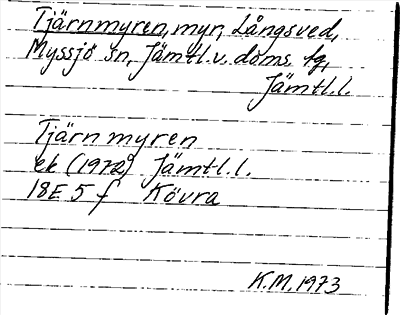 Tjärnmyren, myr, Långsved,
Myssjö sn, Jämtl.v. doms. tg,
Jämtl.l.
Tjärnmyren
ek (1972) Jämtl.l.
18E 5 f Kövra
K.M. 1973